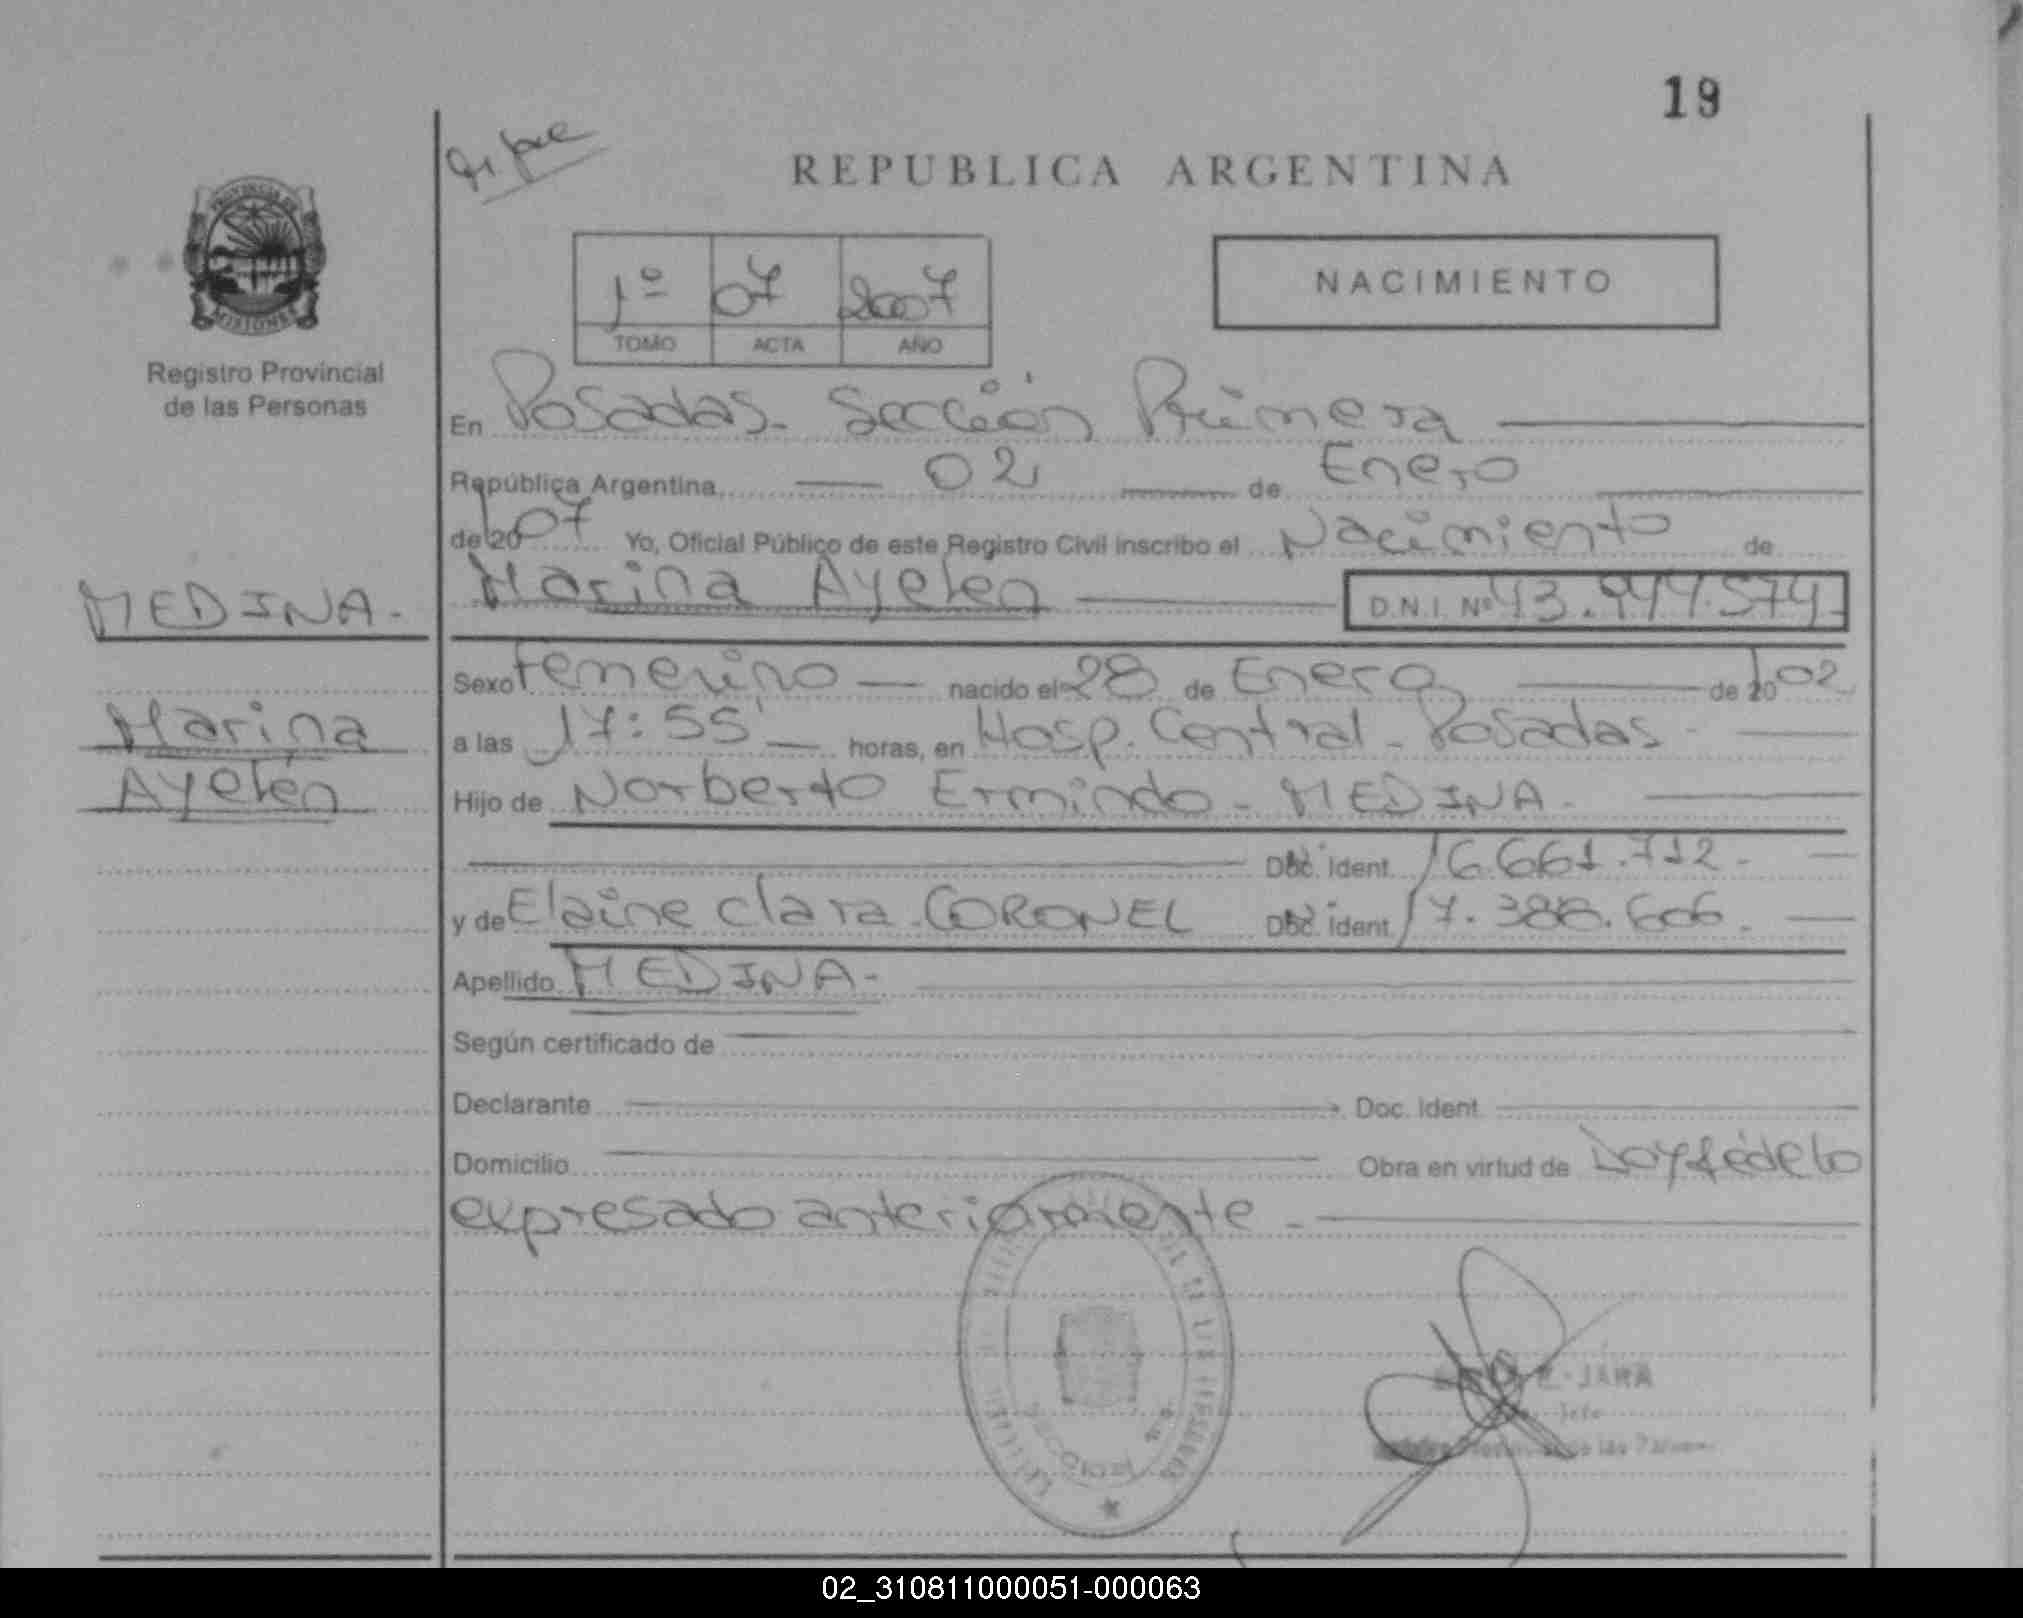 19
REPUBLICA ARGENTINA
PROVINCIA DE
MISIONES
Registro Provincial
de las Personas
1º 07 2007
TOMO ACTA AÑO
NACIMIENTO
En Posadas - Sección Primera
República Argentina 02 de Enero
de 2007 Yo, Oficial Público de este Registro Civil inscribo el Nacimiento de
MEDINA.-
Marina Ayelén D.N.I. Nº
Marina
Ayelén
Sexo Femenino nacido el 28 de Enero de 2002
a las 17:55' horas, en Hosp. Central - Posadas -
Hijo de Norberto Ermindo - MEDINA -
Doc. Ident. 16.661.712.-
y de Elaine Clara CORONEL Doc. Ident. 17.388.606.-
Apellido MEDINA -
Según certificado de
Declarante Doc. Ident.
Domicilio Obra en virtud de Doy fé de lo
expresado anteriormente -
JARA
Jefe
02_310811000051-000063